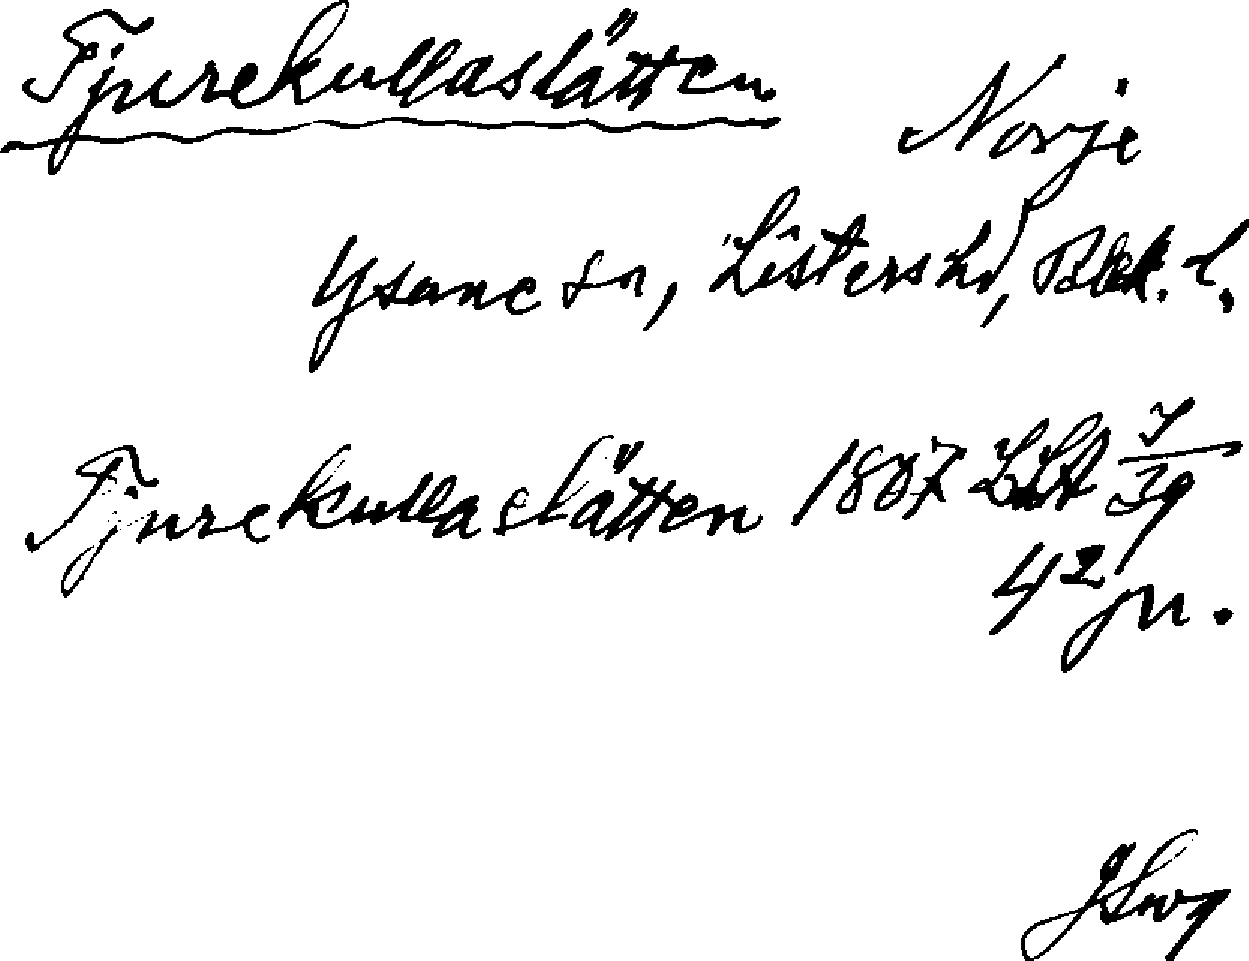 Tjurekullaslätten
Norje
Ysane sn, Listers hd, Blek. l.
Tjurekullaslätten 1807 LSA
39
42 ju.